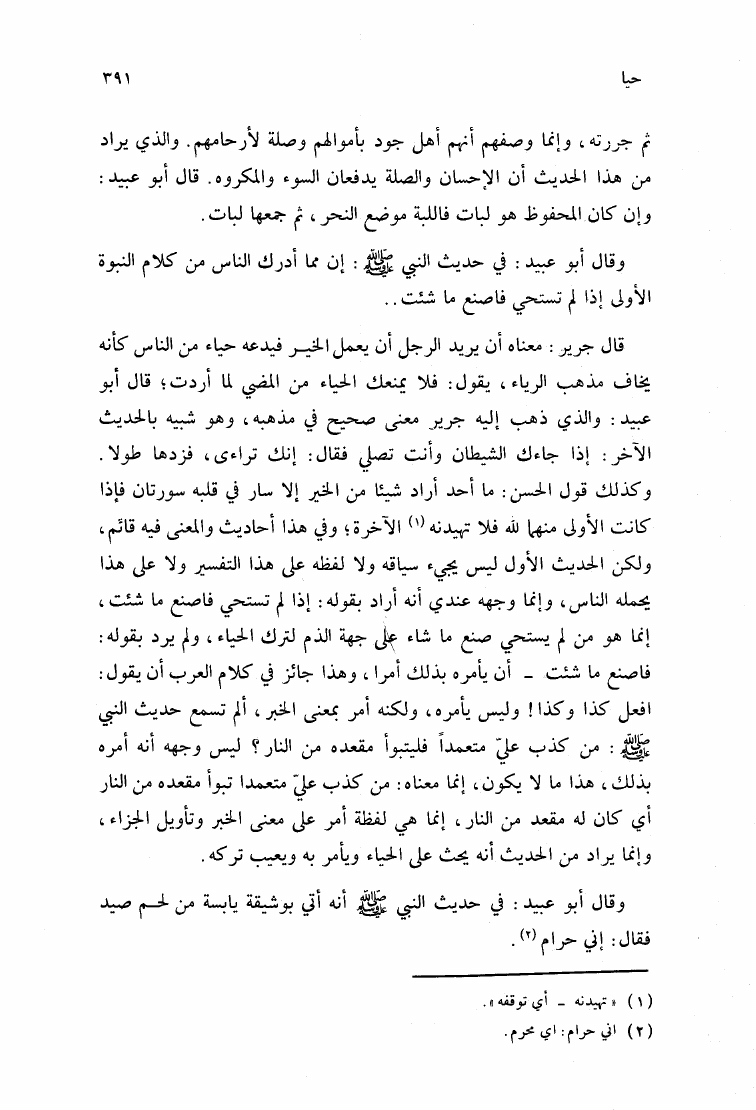 حيا ٣٩١
ثم جررته، وإنما وصفهم أنهم أهل جود بأموالهم وصلة لأرحامهم. والذي يراد
من هذا الحديث أن الإحسان والصلة يدفعان السوء والمكروه. قال أبو عبيد:
وإن كان المحفوظ هو لبات فاللبة موضع النحر، ثم جمعها لبات.
وقال أبو عبيد: في حديث النبي ﷺ: إن مما أدرك الناس من كلام النبوة
الأولى إذا لم تستحي فاصنع ما شئت..
قال جرير: معناه أن يريد الرجل أن يعمل الخير فيدعه حياء من الناس كأنه
يخاف مذهب الرياء، يقول: فلا يمنعك الحياء من المضي لما أردت؛ قال أبو
عبيد: والذي ذهب إليه جرير معنى صحيح في مذهبه، وهو شبيه بالحديث
الآخر: إذا جاءك الشيطان وأنت تصلي فقال: إنك تراءى، فزدها طولا.
وكذلك قول الحسن: ما أحد أراد شيئا من الخير إلا سار في قلبه سورتان فإذا
كانت الأولى منهما لله فلا تهيدنه (١) الآخرة؛ وفي هذا أحاديث والمعنى فيه قائم،
ولكن الحديث الأول ليس يجيء سياقه ولا لفظه على هذا التفسير ولا على هذا
يحمله الناس، وإنما وجهه عندي أنه أراد بقوله: إذا لم تستحي فاصنع ما شئت،
إنما هو من لم يستحي صنع ما شاء على جهة الذم لترك الحياء، ولم يرد بقوله:
فاصنع ما شئت - أن يأمره بذلك أمرا، وهذا جائز في كلام العرب أن يقول:
افعل كذا وكذا! وليس يأمره، ولكنه أمر بمعنى الخبر، ألم تسمع حديث النبي
ﷺ: من كذب عليّ متعمداً فليتبوأ مقعده من النار؟ ليس وجهه أنه أمره
بذلك، هذا ما لا يكون، إنما معناه: من كذب عليّ متعمدا تبوأ مقعده من النار
أي كان له مقعد من النار، إنما هي لفظة أمر على معنى الخبر وتأويل الجزاء،
وإنما يراد من الحديث أنه يحث على الحياء ويأمر به ويعيب تركه.
وقال أبو عبيد: في حديث النبي ﷺ أنه أتي بوشيقة يابسة من لحم صيد
فقال: إني حرام (٢).
(١) «تهيدنه - أي توقفه».
(٢) اني حرام: اي محرم.